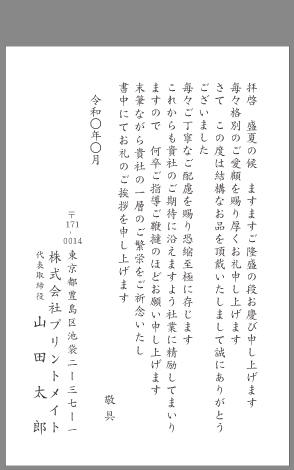 拝啓　盛夏の候　ますますご隆盛の段お慶び申し上げます
毎々格別のご愛顧を賜り厚くお礼申し上げます
さて　この度は結構なお品を頂戴いたしまして誠にありがとう
ございました
毎々ご丁寧なご配慮を賜り恐縮至極に存じます
これからも貴社のご期待に沿えますよう社業に精励してまいり
ますので　何卒ご指導ご鞭撻のほどお願い申し上げます
末筆ながら貴社の一層のご繁栄をご祈念いたし
書中にてお礼のご挨拶を申し上げます
敬具
令和〇年〇月
〒171-0014
東京都豊島区池袋二ー三七ー一
株式会社プリントメイト
代表取締役　山田太郎